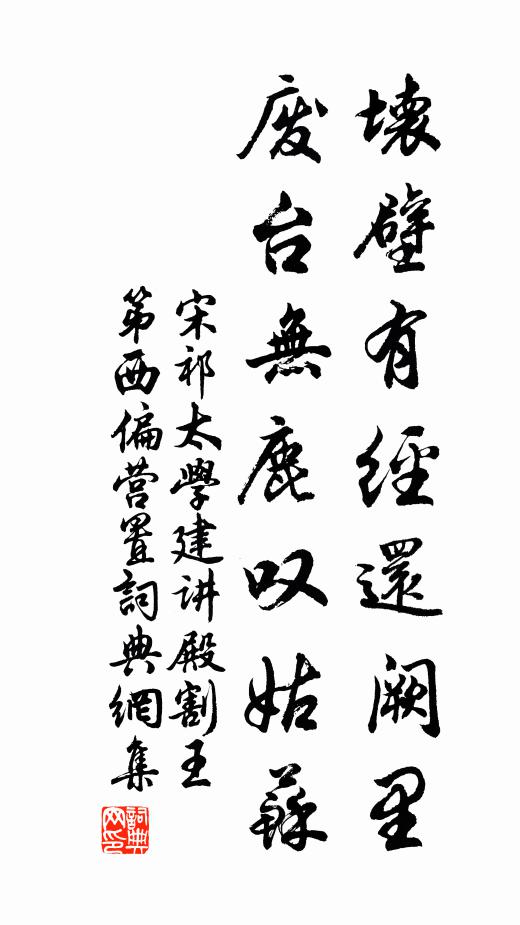 壊壁有經還阙里
废台無鹿叹姑蘇
宋祁太學建讲殿割王
第西偏营置詞典網集
詞典网印